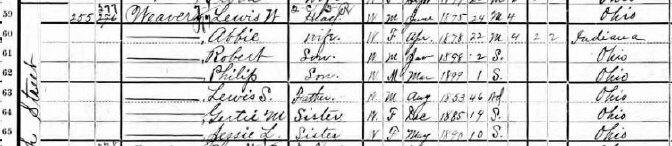 59 255 277 276 Weaver Jr, Lewis W Head W M June 1875 24 M 4 Ohio
60 Abbie Wife W F Apr 1878 22 M 4 2 2 Indiana
61 Robert Son W M Jan 1898 2 S. Ohio
62 Philip Son W M Mar 1899 1 S. Ohio
63 Lewis S. Father W M Aug 1853 46 Wd Ohio
64 Gertie M Sister W F Dec 1885 14 S. Ohio
65 Jessie L. Sister W F May 1890 10 S. Ohio
Street